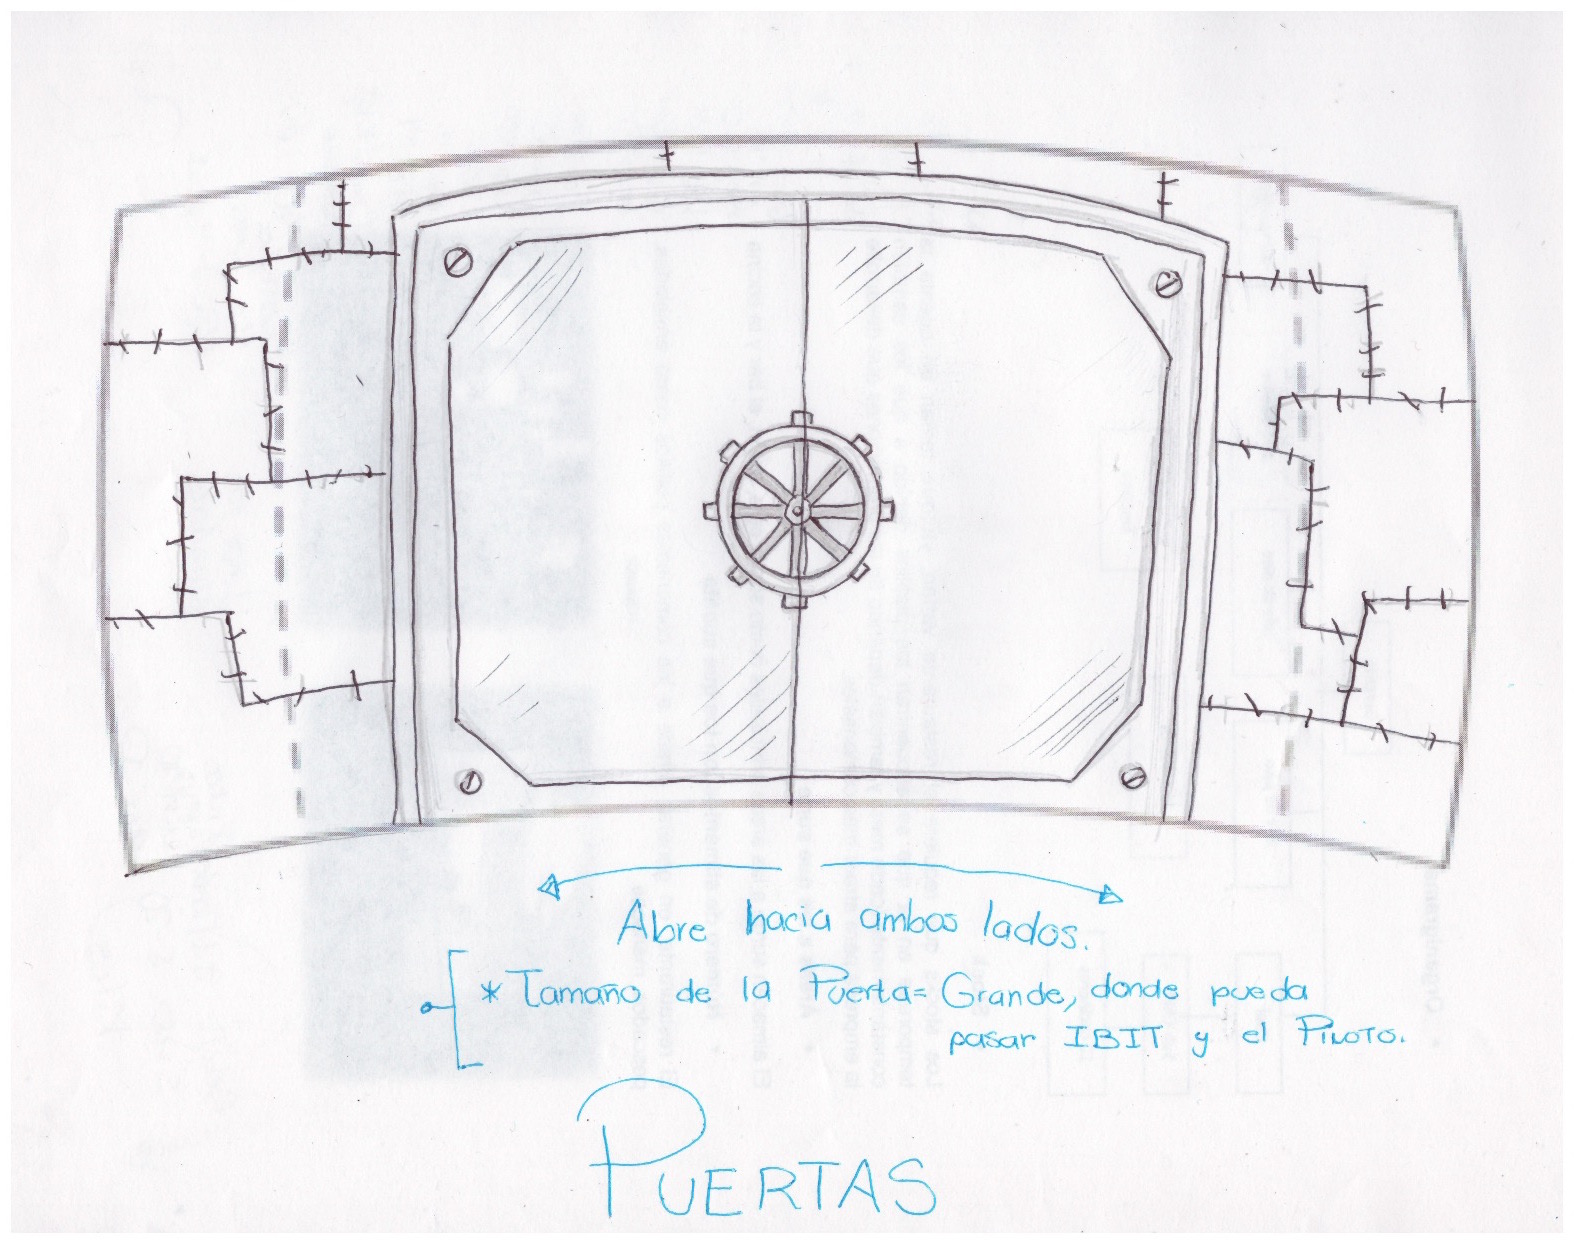 Abre hacia ambos lados.
* Tamaño de la Puerta= Grande, donde pueda
pasar IBIT y el PILOTO.
PUERTAS